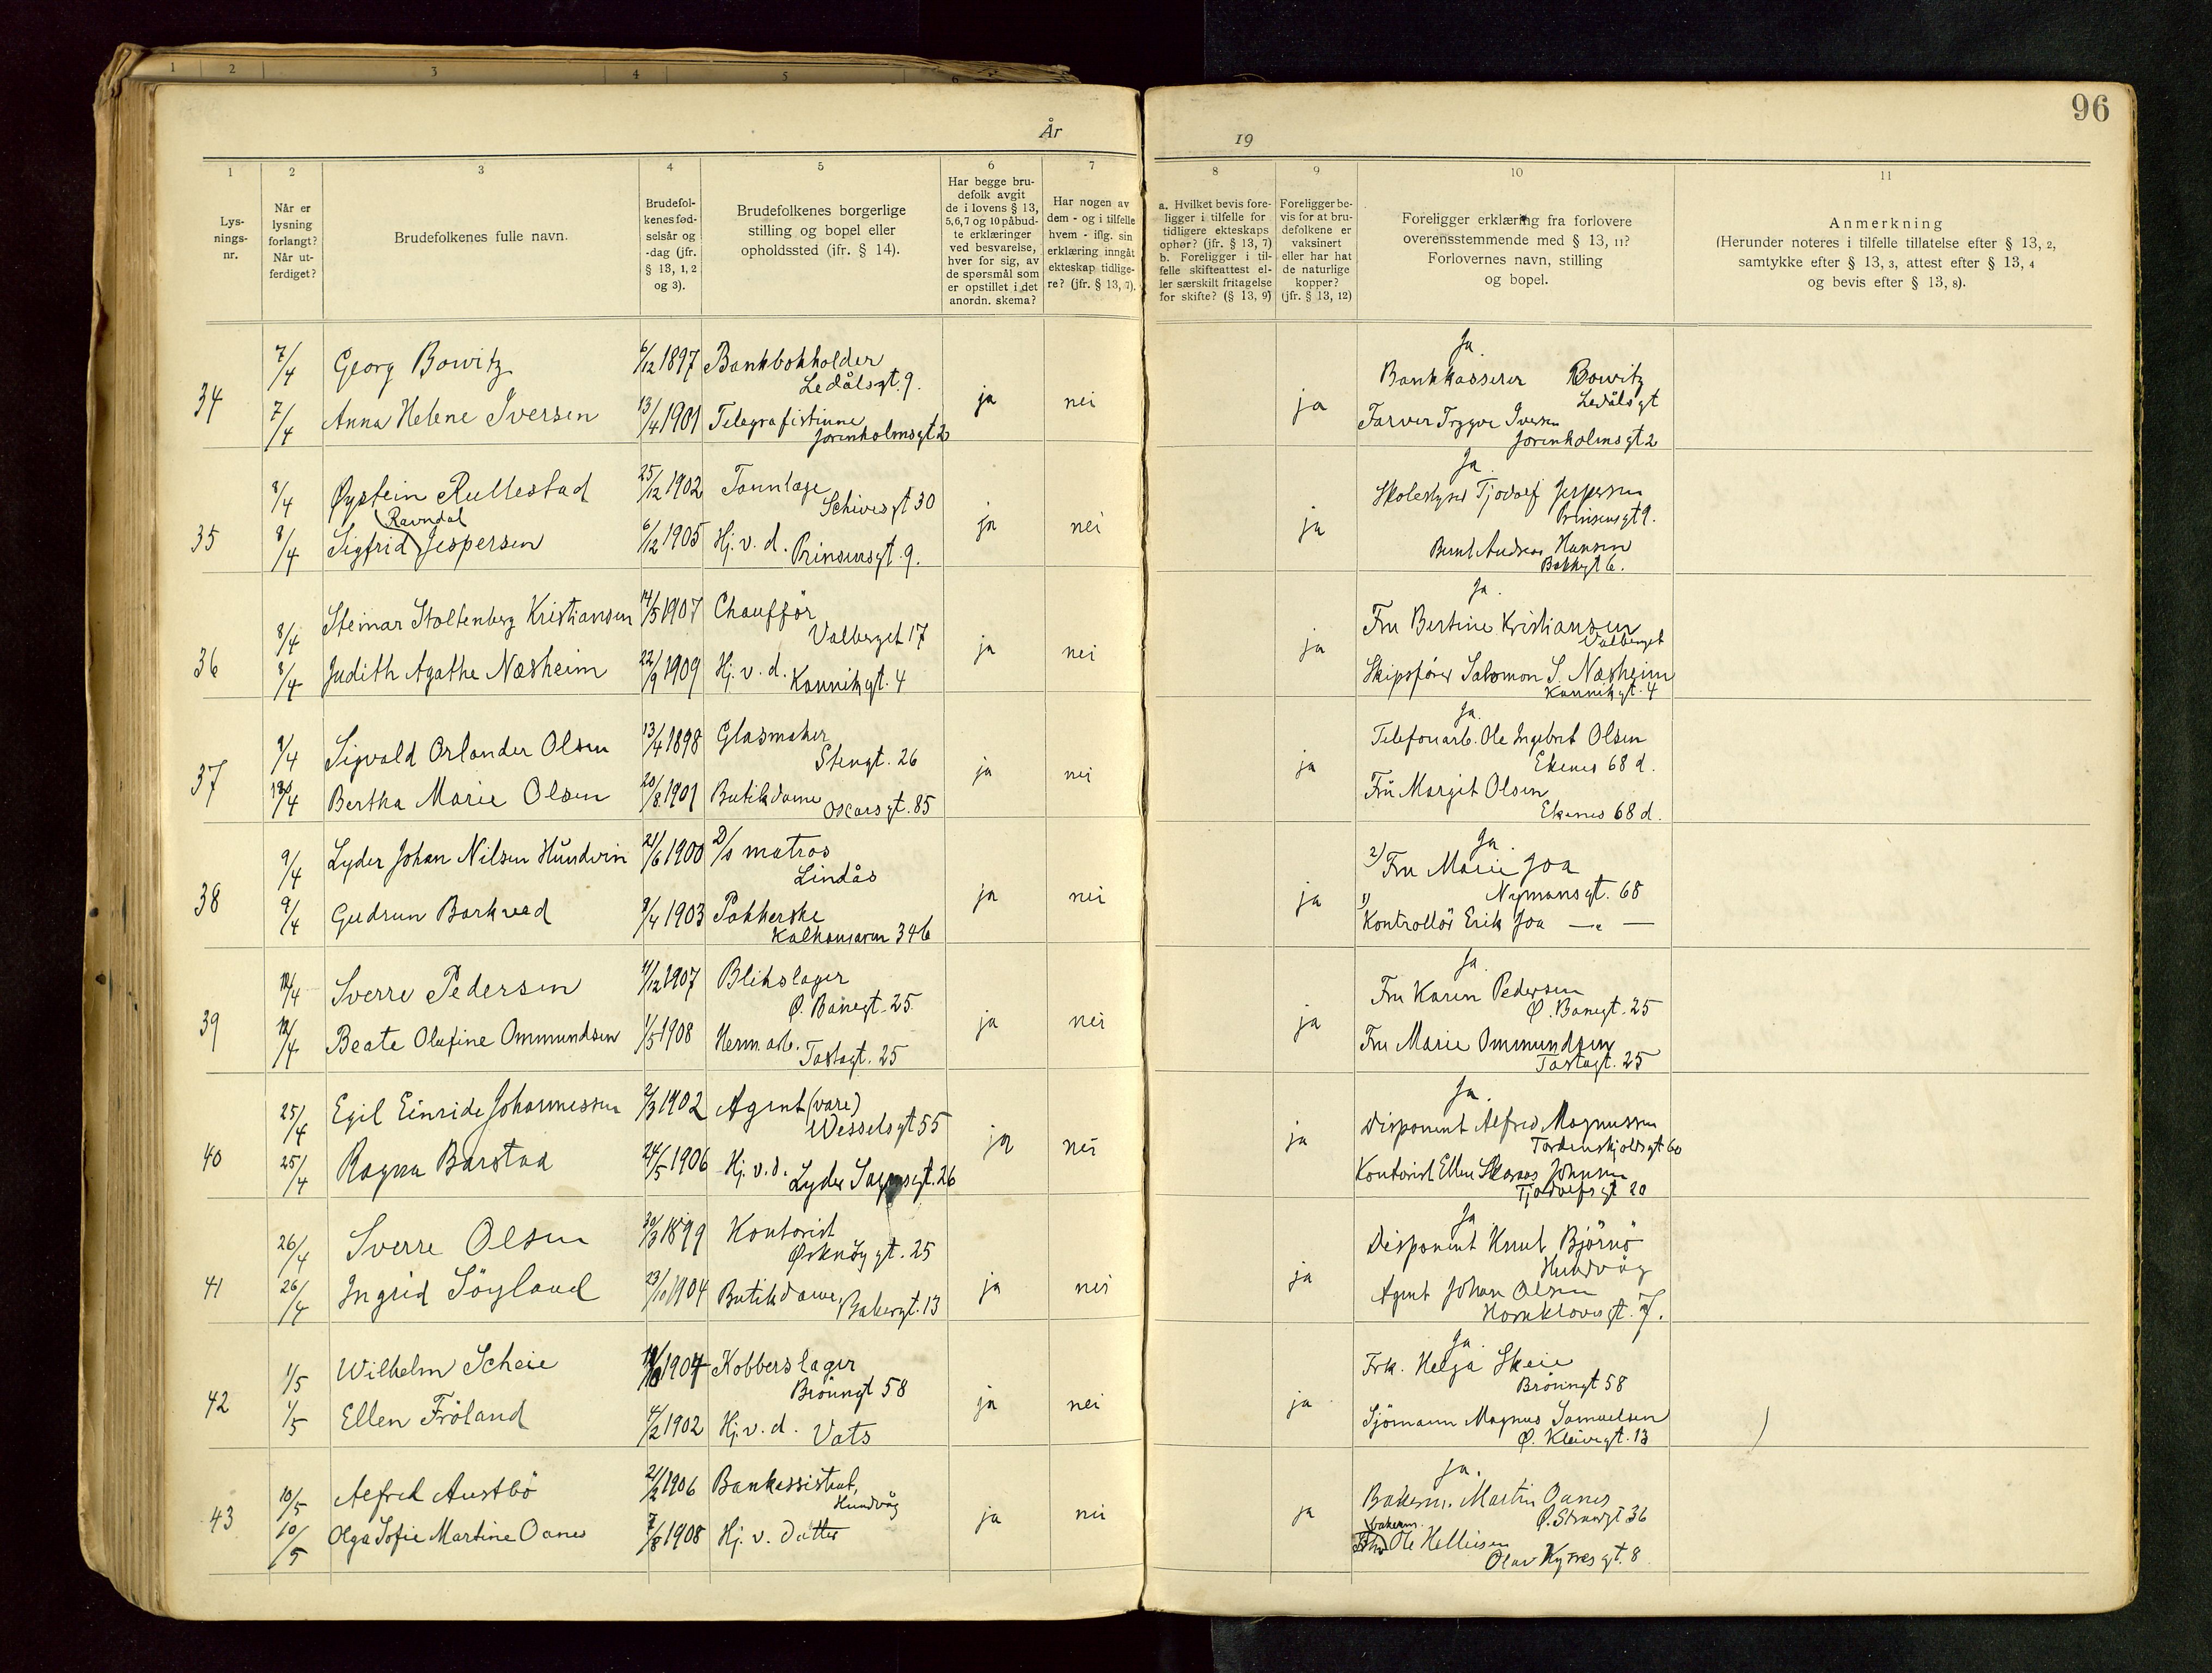 1 2 3 4 5 6
96
År 19
1 2 3 4 5 6 7 8 9 10 11
Lys-
nings-
nr.
Når er
lysning
forlangt?
Når ut-
ferdiget?
Brudefolkenes fulle navn.
Brudefol-
kenes fød-
selsår og
-dag (jfr.
§ 13, 1, 2
og 3).
Brudefolkenes borgerlige
stilling og bopel eller
opholdssted (jfr. § 14).
Har begge bru-
defolk avgit
de i lovens § 13,
5,6,7 og 10 påbud-
te erklæringer
ved besvarelse,
hver for sig, av
de spørsmål som
er opstillet i det
anordn. skema?
Har nogen av
dem - og i tilfelle
hvem - iflg. sin
erklæring inngåt
ekteskap tidlige-
re? (jfr. § 13, 7).
a. Hvilket bevis fore-
ligger i tilfelle for
tidligere ekteskaps
ophør? (jfr. § 13, 7)
b. Foreligger i til-
felle skifteattest el-
ler særskilt fritagelse
for skifte? (§ 13, 9)
Foreligger be-
vis for at bru-
defolkene er
vaksinert
eller har hat
de naturlige
kopper?
(jfr. § 13, 12)
Foreligger erklæring fra forlovere
overensstemmende med § 13, 11?
Forlovernes navn, stilling
og bopel.
Anmerkning
(Herunder noteres i tilfelle tillatelse efter § 13, 2,
samtykke efter § 13, 3, attest efter § 13, 4
og bevis efter § 13, 8).
34
7/4 Georg Bowitz 6/12 1897 Bankbokholder
Ledålsgt. 9.
7/4 Anna Helene Iversen 13/4 1901 Telegrafistinne
Jorenholmsgt 2
ja nei ja
Ja.
Bankkasserer Bowitz
Ledålsgt
Farver Trygve Iversen
Jorenholmsgt 2
35
8/4 Øystein Rullestad 25/12 1902 Tannlæge
Schivesgt 30
Ravndal
8/4 Sigfrid Jespersen 6/12 1905 Hj. v. d. Prinsensgt. 9.
ja nei ja
Ja.
Skolestyrer Tjodolf Jespersen
Prinsensgt 9.
Bernt Andreas Hansen
Bakkegt 6.
36
8/4 Steinar Stoltenberg Kristiansen 14/5 1907 Chaufför
Valberget 17
8/4 Judith Agathe Næsheim 22/9 1909 Hj. v. d. Kannikgt. 4
ja nei ja
Ja.
Fru Bertine Kristiansen
Valberget
Skipsfører Salomon S. Næsheim
Kannikgt. 4
37
9/4 Sigvald Orlander Olsen 13/4 1898 Glasmaker
Stengt. 26
/4 Bertha Marie Olsen 20/8 1901 Butikdame
Oscarsgt. 85
ja nei ja
Ja.
Telefonarb. Ole Ingebret Olsen
Ekenes 68 d.
Fru Margit Olsen
Ekenes 68 d.
38
9/4 Lyder Johan Nilsen Hundvin 21/6 1900 D/s matros
Lindås
9/4 Gudrun Barkved 9/4 1903 Pakkerske
Kalhammaren 34b
ja nei ja
Ja.
2) Fru Marie Joa
Nymansgt. 68
1) Kontrollör Erik Joa — „ —
39
12/4 Sverre Pedersen 11/12 1907 Blikslager
Ø. Banegt. 25
12/4 Beate Olufine Ommundsen 1/5 1908 Herm. arb.
Tastagt. 25
ja nei ja
Ja.
Fru Karen Pedersen
Ø. Banegt. 25
Fru Marie Ommundsen
Tastagt. 25
40
25/4 Egil Einride Johannessen 2/3 1902 Agent (vare)
Wesselsgt 55
25/4 Ragna Barstad 24/5 1906 Hj. v. d. Lyder Sagensgt. 26
ja nei ja
Ja.
Disponent Alfred Magnussen
Tordenskjoldsgt 60
Kontorist Ellen Johnsen
Tjodolfsgt 20
41
26/4 Sverre Olsen 30/3 1899 Kontorist
gt. 25
26/4 Ingrid Söyland 23/10 1904 Butikdame, Bakergt. 13
ja nei ja
Ja
Disponent Knut Björnö
Hundvåg
Agent Johan Olsen
Hornklovesgt. 7.
42
1/5 Wilhelm Scheie 1904 Kobberslager
Brönngt 58
1/5 Ellen Fröland 4/2 1902 Hj. v. d. Vats
ja nei ja
Ja.
Frk. Helga Skeie
Brönngt 58
Sjömann Magnus Samuelsen
Ø. Kleivegt. 13
43
10/5 Alfred Austbö 21/2 1906 Bankassistent,
Hundvåg
10/5 Olga Sofie Martine Oanes 7/8 1908 Hj. v. datter
ja nei ja
Ja.
Bakerm. Martin Oanes
Ø. Strandgt 36
bakerm.
Ole Helliesen
Olav Kyrresgt. 8.